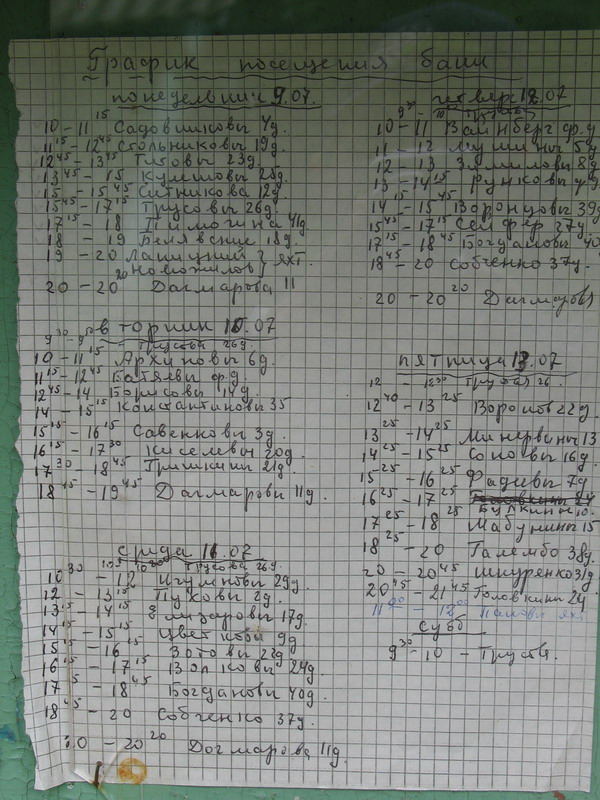 График посещения бани
понедельник 9.07.
10 - 11¹⁵ Садовниковы 4д.
11¹⁵ - 12⁴⁵ Стольниковы 19д.
12⁴⁵ - 13⁴⁵ Титовы 23д.
13⁴⁵ - 15
15 - 15⁴⁵ Ситникова 12д.
15⁴⁵ - 17¹⁵ Трусовы 26д.
17¹⁵ - 18 Пимогина 41д
18 - 19
19 - 20 ЯХТ.
Новожилов
20 - 20²⁰ Дагмарова 11
вторник 10.07
9³⁰ - 9⁵⁰ Трусова 26д.
10 - 11¹⁵ Архиповы 6д.
11¹⁵ - 12⁴⁵ Батяевы ф.д.
12⁴⁵ - 14 Борисовы 14д
14 - 15¹⁵ Константиновы 35
15¹⁵ - 16¹⁵ Савенковы 3д.
16¹⁵ - 17³⁰ Киселевы 20д.
17³⁰ - 18⁴⁵ Гришкины 21д.
18⁴⁵ - 19⁴⁵ Дагмаровы 11д.
среда 11.07
Трусовы 26д.
10³⁰ - 12 Игумновы 29д.
12 - 13¹⁵ Пуховы 2д.
13¹⁵ - 14¹⁵ Елизаровы 17д.
14¹⁵ - 15¹⁵ Цветковы 9д
15¹⁵ - 16¹⁵ Зотовы 22д
16¹⁵ - 17¹⁵ Волковы 24д
17¹⁵ - 18⁴⁵ Богдановы 40д.
18⁴⁵ - 20 Собченко 37д.
20 - 20²⁰ Догмарова 11д.
четверг 12.07
10 - 11 Вайнберг ф.д
11 - 12 Мушины 5д
12 - 13 8д
13 - 14¹⁵ Рунковы
14¹⁵ - 15⁴⁵ Воронцовы 39д
15⁴⁵ - 17¹⁵ Сейфер 27д
17¹⁵ - 18⁴⁵ Богдановы 40
18⁴⁵ - 20 Собченко 37д.
20 - 20²⁰ Дагмаровы
пятница 13.07
12 - Трусов 26.
12⁴⁰ - 13²⁵ Воронов 22д.
13²⁵ - 14²⁵ Минервины 13
14²⁵ - 15²⁵ Соколовы 16д.
15²⁵ - 16²⁵ Фадеевы 7д
16²⁵ - 17²⁵
Булкины 10.
17²⁵ - 18²⁵ Мабунины 15
18²⁵ - 20 Галембо 38д.
20 - 20⁴⁵ Шкуренко 31д.
20⁴⁵ - 21⁴⁵ Головкины 24
11⁰⁰ - 12⁰⁰ Панова ях.
субб
9³⁰ - 10 - Трусов.